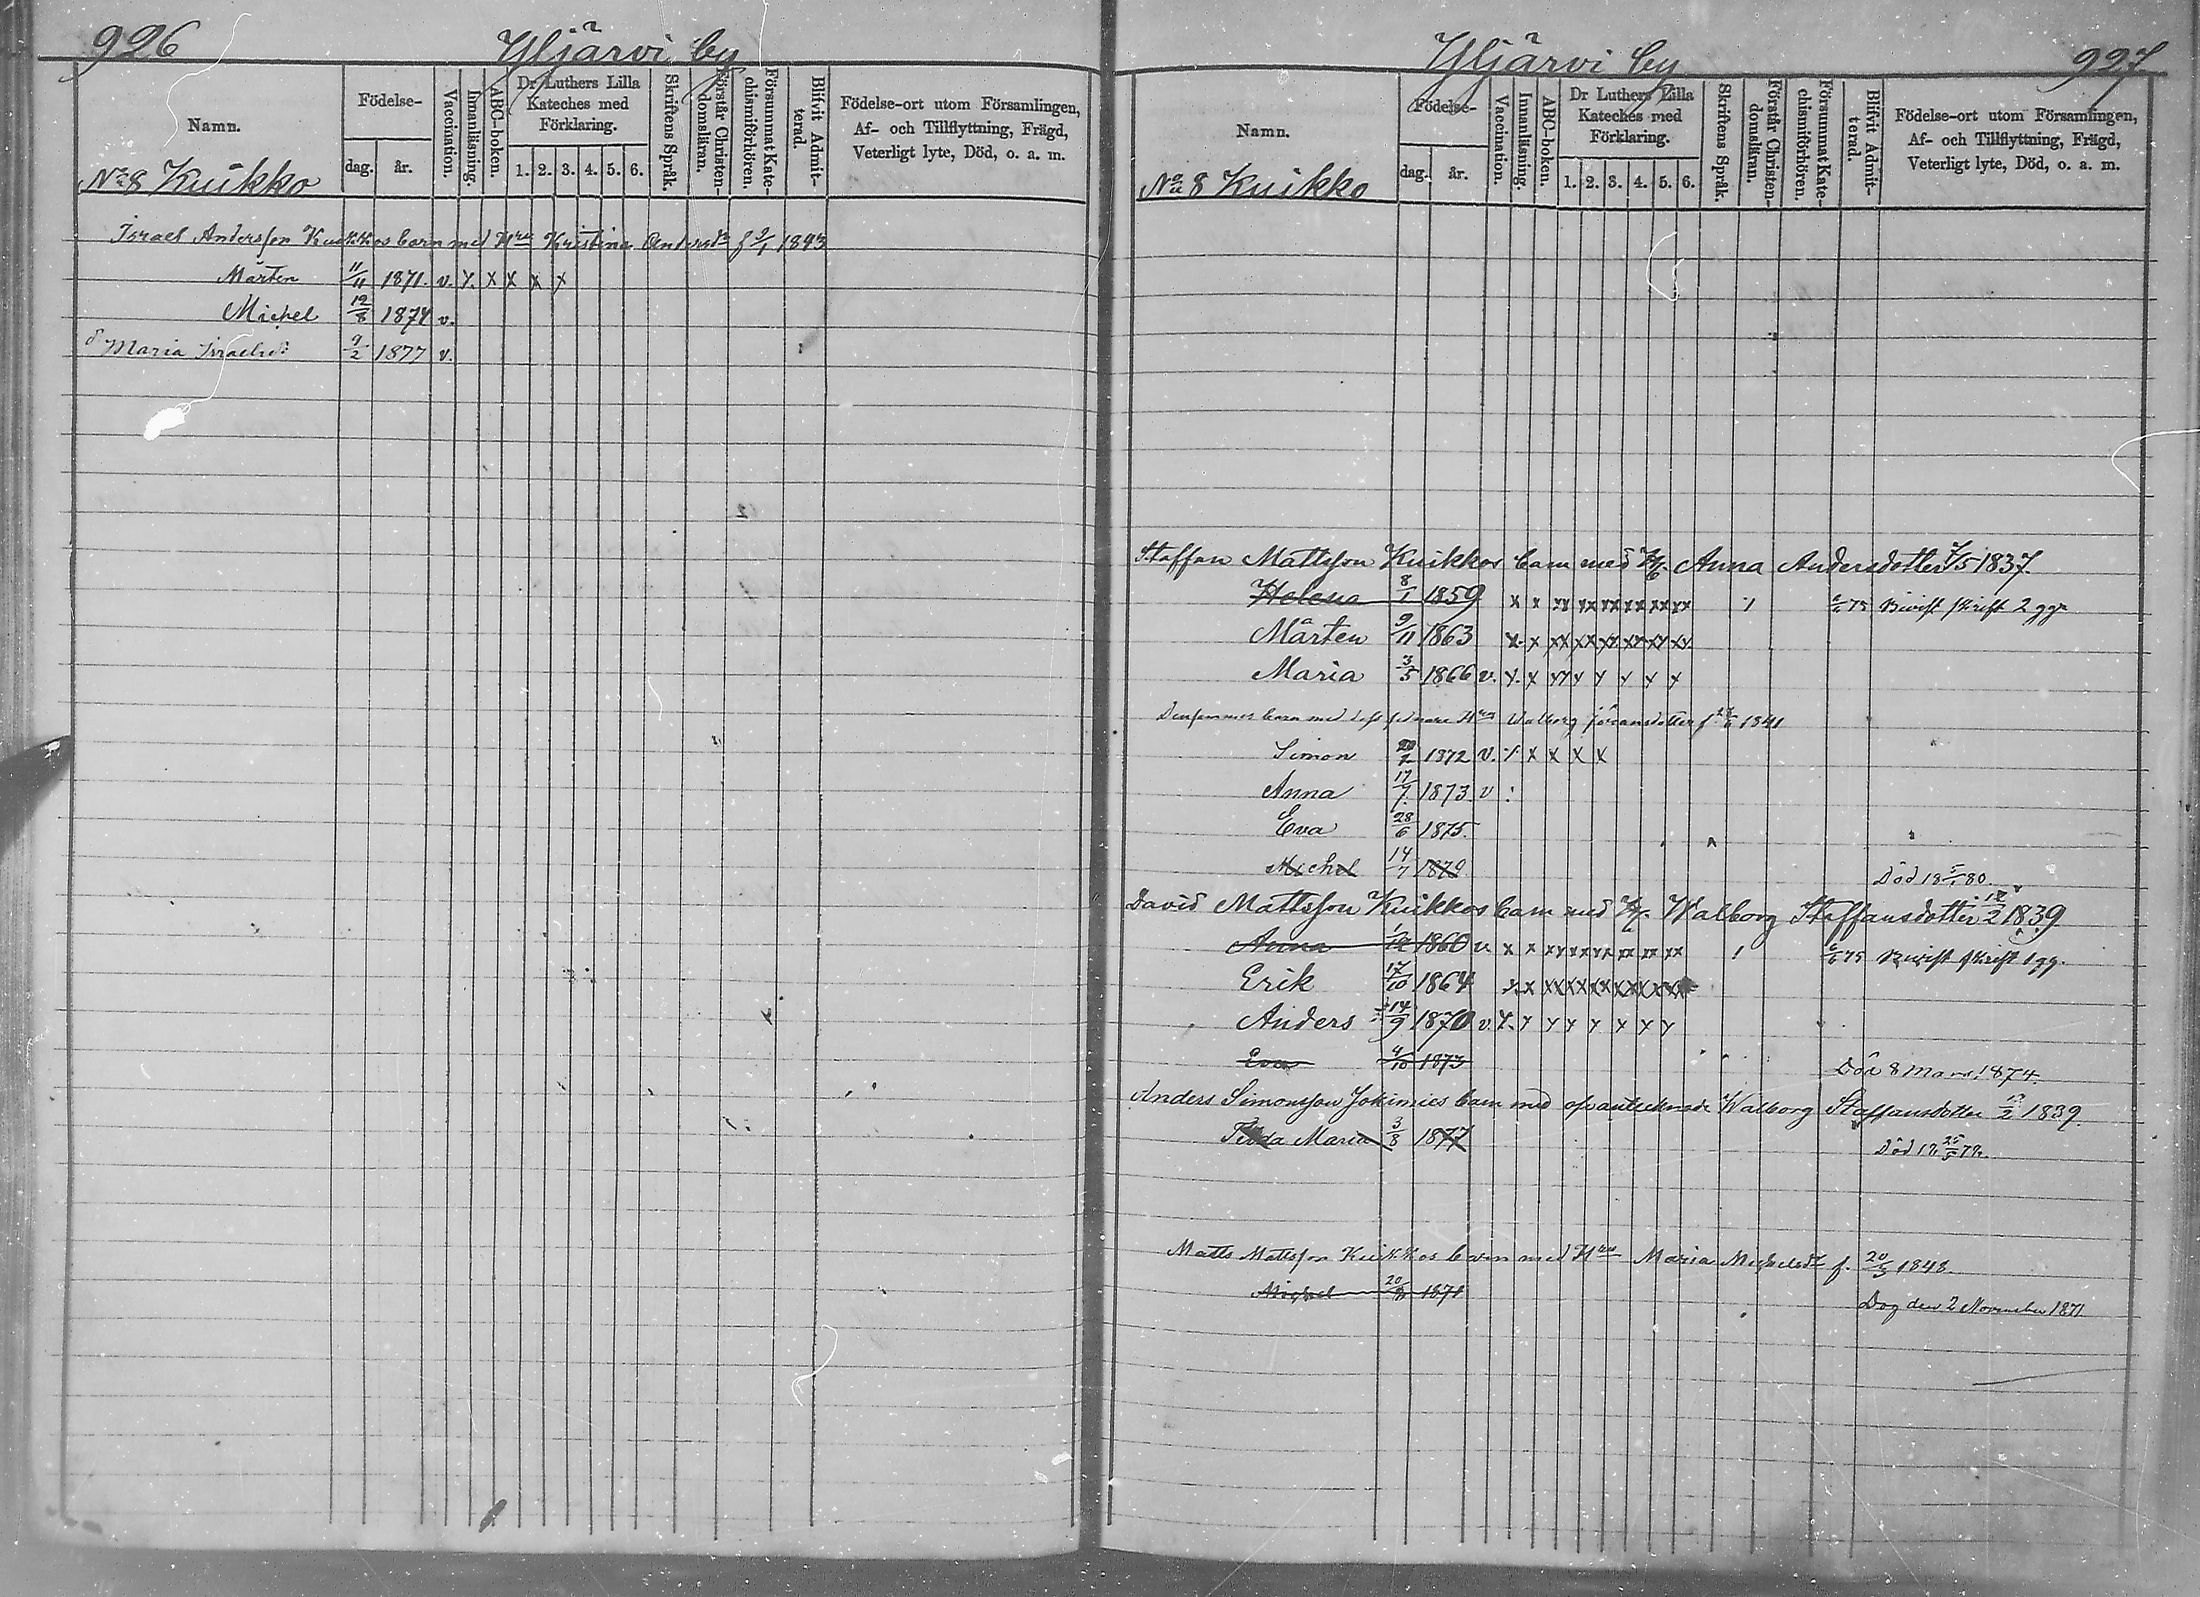 926 Yljärvi by
Namn. Födelse- dag. år. Vaccination. Innanläsning. ABC-boken. Dr Luthers Lilla Kateches med Förklaring. 1. 2. 3. 4. 5. 6. Skriftens Språk. Förstår Christendomsläran. Försummat Katechismiförhören. Blifvit Admitterad. Födelse-ort utom Församlingen, Af- och Tillflyttning, Frägd, Veterligt lyte, Död, o. a. m.
No 8 Kuikko
Israel Andersson Kuikkos barn med Hru Kristina Andersdr f 1843
Mårten 11/11 1871. v. x x x x
Michel 12/8 1874 v.
Maria Israelsd: 9/2 1877 v.
Yljärvi by 927
Namn. Födelse- dag. år. Vaccination. Innanläsning. ABC-boken. Dr Luthers Lilla Kateches med Förklaring. 1. 2. 3. 4. 5. 6. Skriftens Språk. Förstår Christendomsläran. Försummat Katechismiförhören. Blifvit Admitterad. Födelse-ort utom Församlingen, Af- och Tillflyttning, Frägd, Veterligt lyte, Död, o. a. m.
No 8 Kuikko
Staffan Mattsson Kuikkos barn med H. Anna Andersdotter 7/5 1837.
Helena 8/1 1859 x x xx xx xx xx xx xx 6/6 75 skrift 2 ggr
Mårten 9/11 1863 x x xx xx xx xx xx xx
Maria 3/5 1866 v. x x
barn med Hru Walborg Jöransdotter f 1841
Simon 1872 v. x x x x
Anna 17/7 1873 v
Eva 28/6 1875.
Michel 14/7 1879 Död 18 5/1 80.
David Mattsson Kuikkos barn med H. Walborg Staffansdotter 12/2 1839
Anna 1/12 1860 v. x x xx xx xx xx xx xx 6/6 75 skrift 1 gg.
Erik 17/10 1864 x xx xx xx xx xx
Anders 14/9 1870 v.
Eva 4/10 1873 Död 8 Mars 1874.
Anders Simonsson Jokimies barn med ofvantecknade Walborg Staffansdotter 12/2 1839.
Tilda Maria 3/8 1877 Död 18 25/5 78.
Matts Mattsson Kuikkos barn med Hru Maria Michelsdr f. 20/3 1848.
Michel 1871 Dog den 2 November 1871